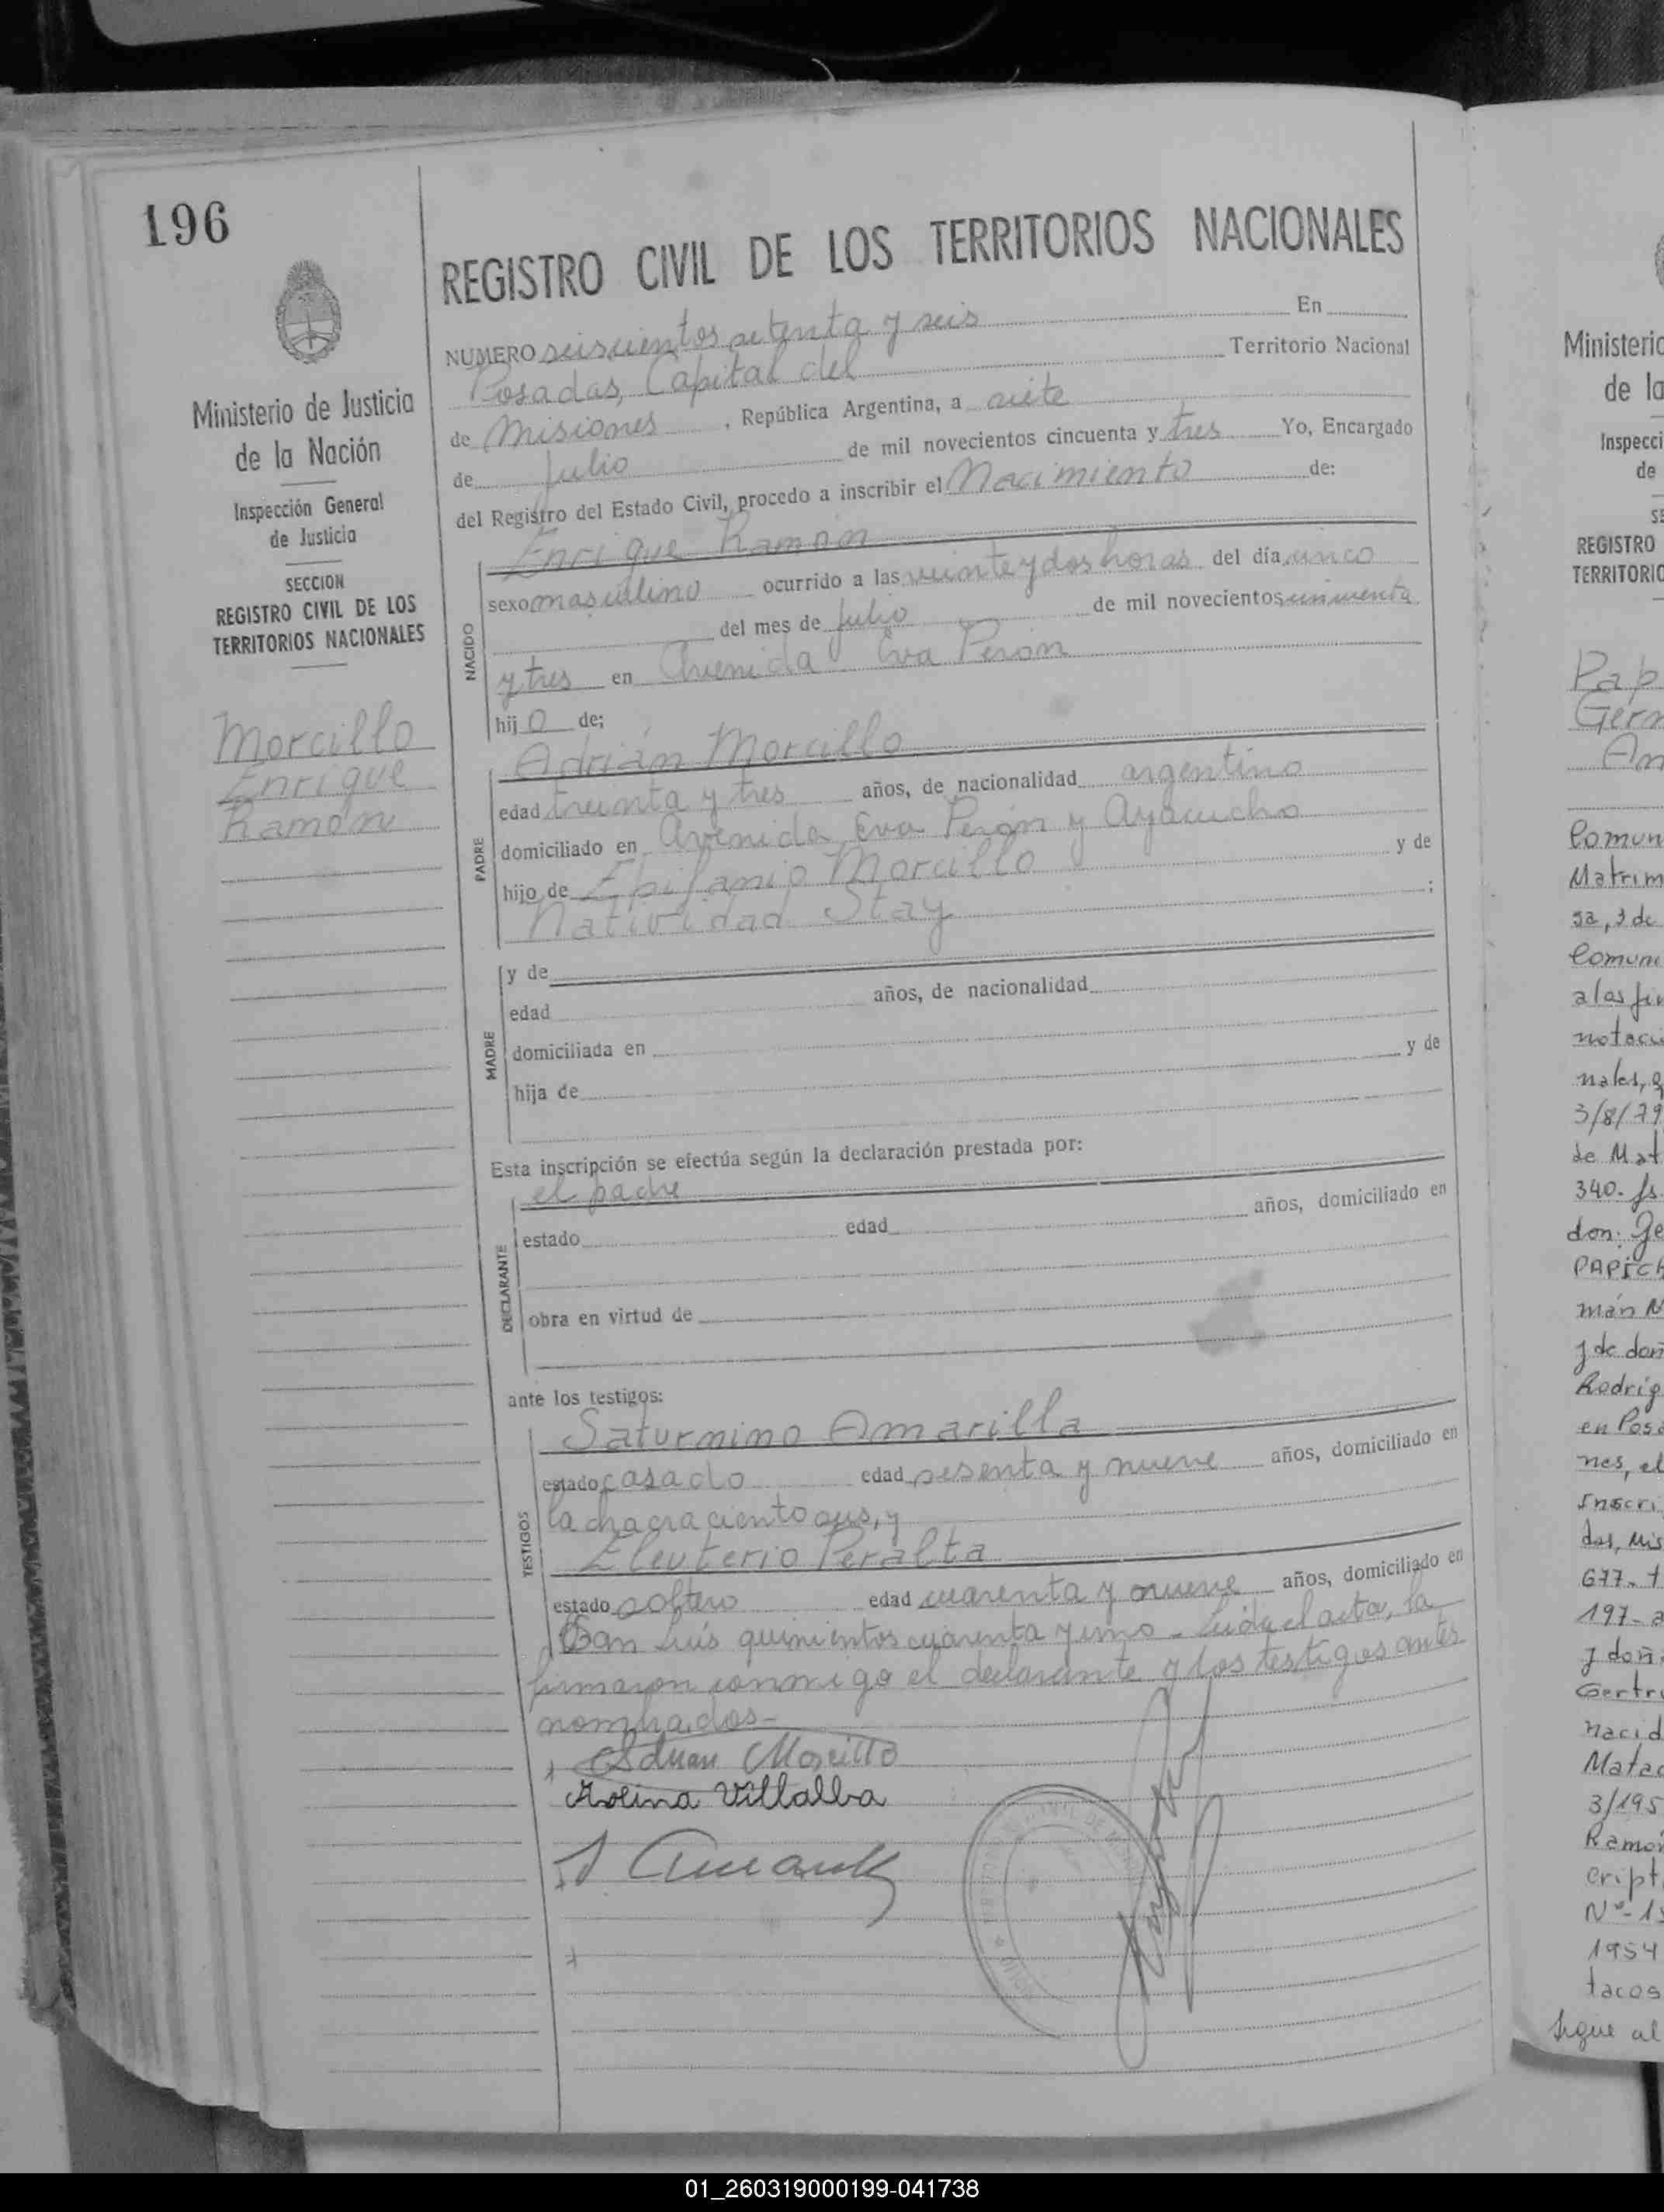 196
Ministerio de Justicia
de la Nación
Inspección General
de Justicia
SECCION
REGISTRO CIVIL DE LOS
TERRITORIOS NACIONALES
Morcillo
Enrique
Ramón
REGISTRO CIVIL DE LOS TERRITORIOS NACIONALES
NUMERO seiscientos setenta y seis En
Posadas, Capital del Territorio Nacional
de Misiones, República Argentina, a siete
de Julio de mil novecientos cincuenta y tres Yo, Encargado
del Registro del Estado Civil, procedo a inscribir el Nacimiento de:
Enrique Ramón
NACIDO
sexo masculino ocurrido a las veinte y dos horas del día cinco
del mes de Julio de mil novecientos cincuenta
y tres en Avenida Eva Perón
hijo de;
Adrián Morcillo
PADRE
edad treinta y tres años, de nacionalidad argentino
domiciliado en Avenida Eva Perón y Ayacucho
hijo de Epifanio Morcillo y de
Natividad Stay ;
MADRE
y de
edad años, de nacionalidad
domiciliada en
hija de y de
Esta inscripción se efectúa según la declaración prestada por:
el padre
DECLARANTE
estado edad años, domiciliado en
obra en virtud de
ante los testigos:
Saturnino Amarilla
TESTIGOS
estado casado edad sesenta y nueve años, domiciliado en
la chacra ciento seis, y
Eleuterio Peralta
estado soltero edad cuarenta y nueve años, domiciliado en
San Luis quinientos cuarenta y uno - Leida el acta, la
firmaron conmigo el declarante y los testigos antes
nombrados -
Adrian Morcillo
Villalba
Ministerio
de la
Inspecci
de
SE
REGISTRO
TERRITORIO
Pap
Germ
An
Comun
Matrim
sa, 3 de
Comuni
a los fin
notaci
nales, q
3/8/79
de Mat
340. fs.
don. Ge
PAPICH
mán N
y de doñ
Rodrig
en Posa
nes, el
Inscri
das, Mis
677. T
197 - a
y doñ
Gertru
nacid
Matac
3/195
Ramón
cript
Nº - 15
1954
tacos
Sigue al
01_260319000199-041738